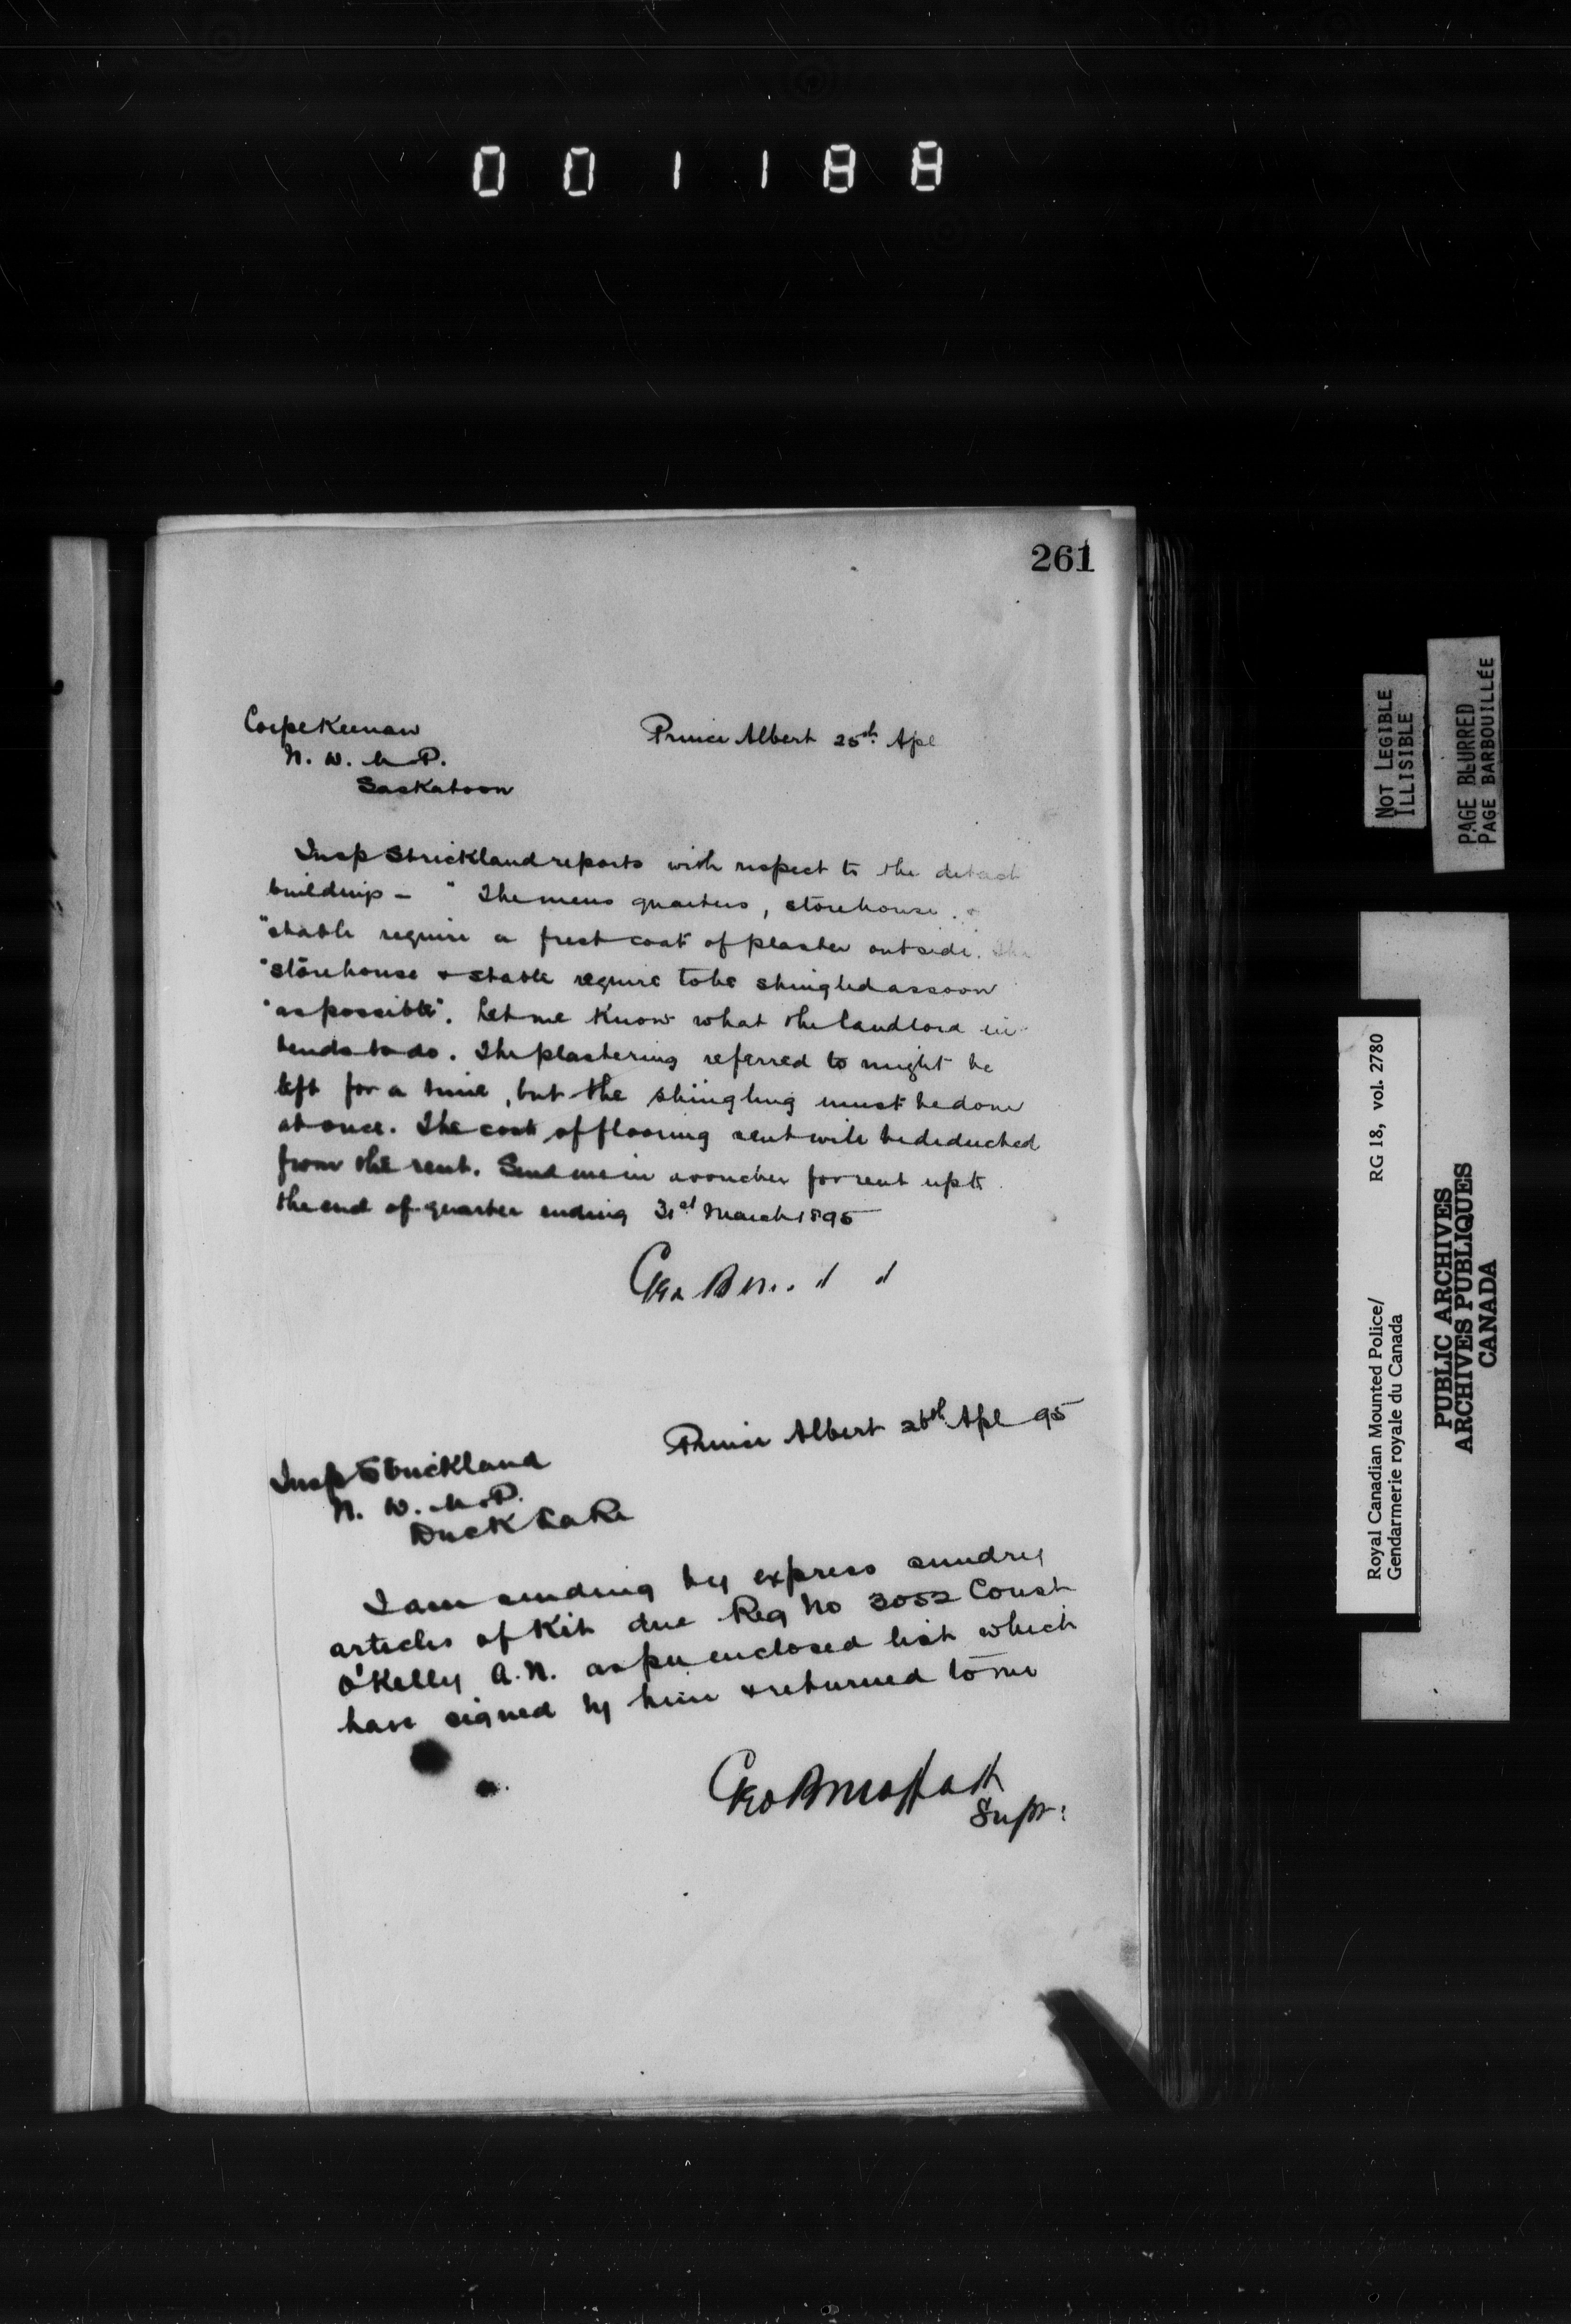 001188
261
Corpl Keenan
Prince Albert 25th Apl
N. W. M. P.
Saskatoon
Insp Strickland reports with respect to the detach
buildings - " The mens quarters, storehouse &
"stable require a fresh coat of plaster outside. The
"storehouse & stable require to be shingled as soon
"as possible". Let me know what the landlord in
tends to do. The plastering referred to might be
left for a time, but the shingling must be done
at once. The cost of flooring sent will be deducted
from the rent. Send me in a voucher for rent up to
the end of quarter ending 31st March 1895
Geo B
Prince Albert 26th Apl 95
Insp Strickland
N. W. M. P.
Duck Lake
I am sending by express sundry
articles of Kit due Reg No 3052 Const
O'Kelly A. N. as per enclosed list which
have signed by him & returned to me
Geo B Moffatt
Supt:
NOT LEGIBLE
ILLISIBLE
PAGE BLURRED
PAGE BARBOUILLÉE
Royal Canadian Mounted Police/ RG 18, vol. 2780
Gendarmerie royale du Canada
PUBLIC ARCHIVES
ARCHIVES PUBLIQUES
CANADA